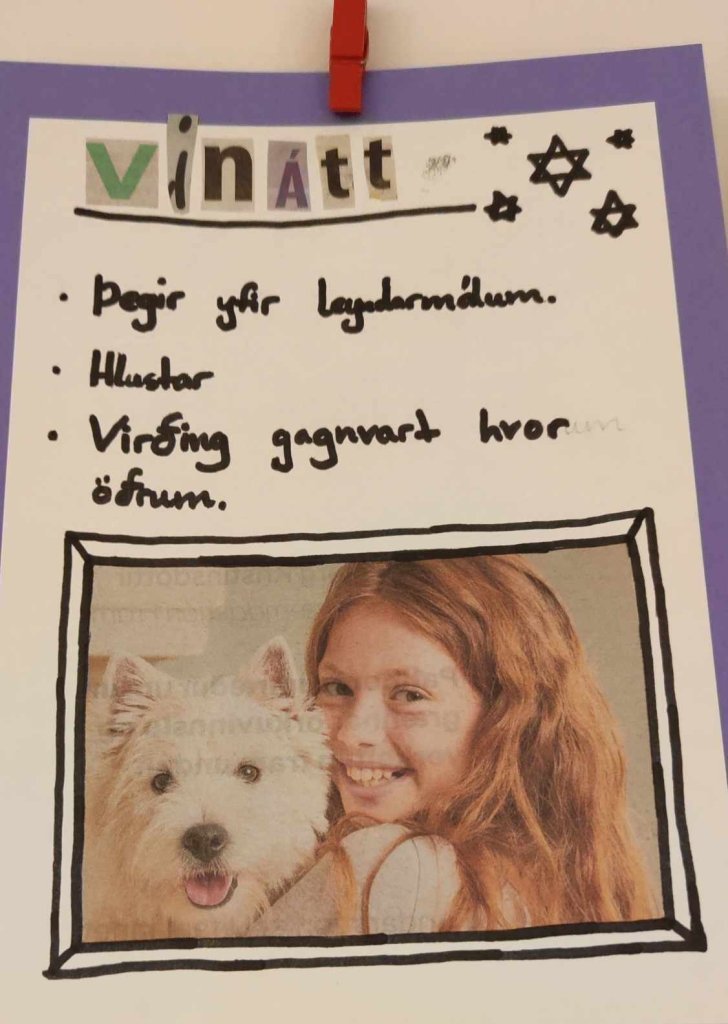 VinÁtt
• Þegir yfir leyndarmálum.
• Hlustar
• Virðing gagnvart hvor
öðrum.